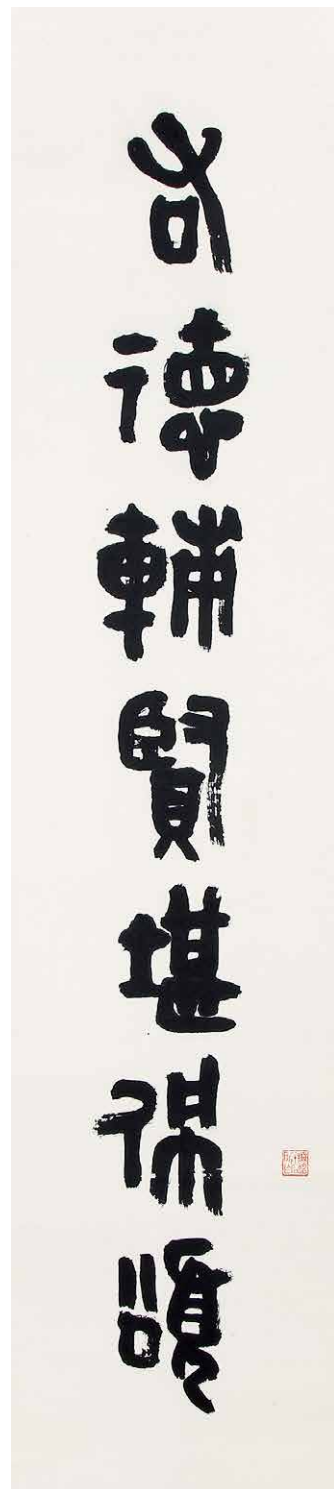 右德輔賢堪保頌